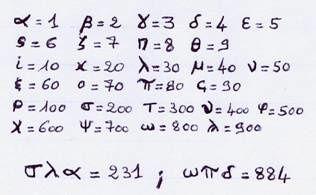 α=1 β=2 γ=3 δ=4 ε=5
ς=6 ζ=7 η=8 θ=9
ι=10 κ=20 λ=30 μ=40 ν=50
ξ=60 ο=70 π=80 ς=90
ρ=100 σ=200 τ=300 υ=400 φ=500
χ=600 ψ=700 ω=800 λ=900
σλα=231 ; ωπδ=884